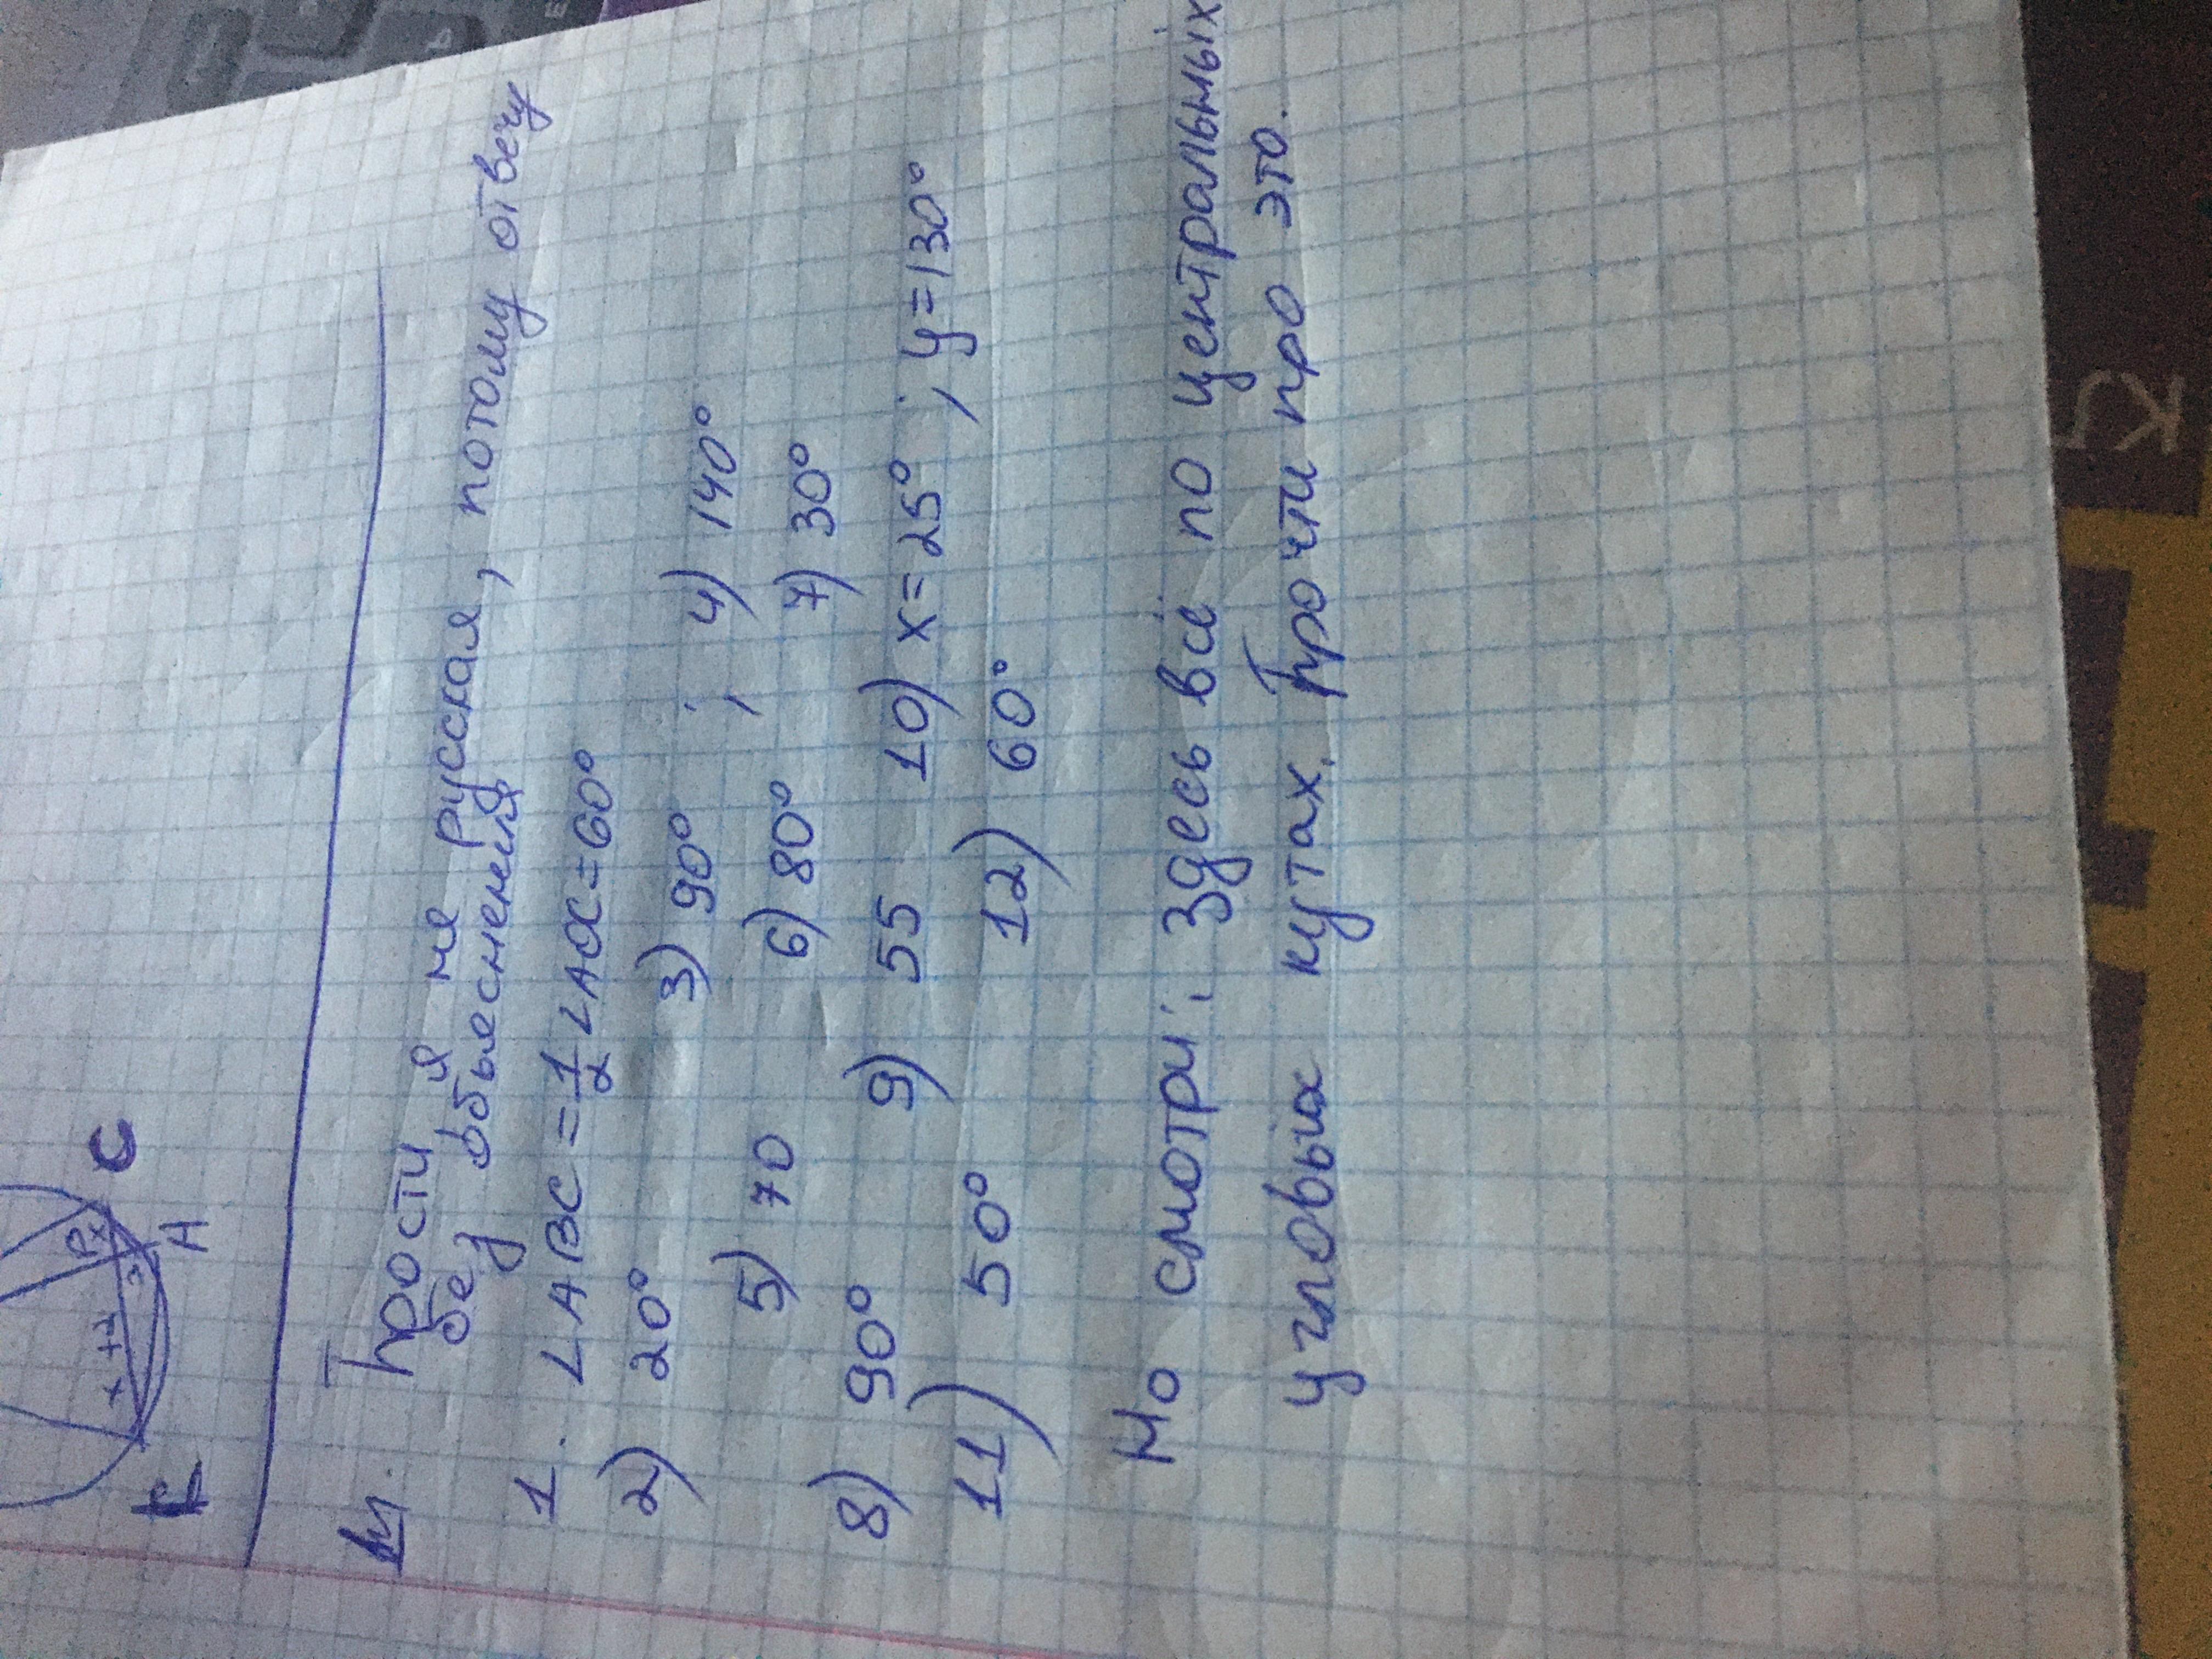 C
A
Прости я не русская, потому отвечу
без объеснения
1. ∠ABC = 1/2 ∠AOC = 60°
2) 20° 3) 90° ; 4) 140°
5) 70 6) 80° 7) 30°
8) 90° 9) 55 10) x = 25° ; y = 130°
11) 50° 12) 60°
Но смотри, здесь всё по центральных
угловых кутах. Прочти про это.